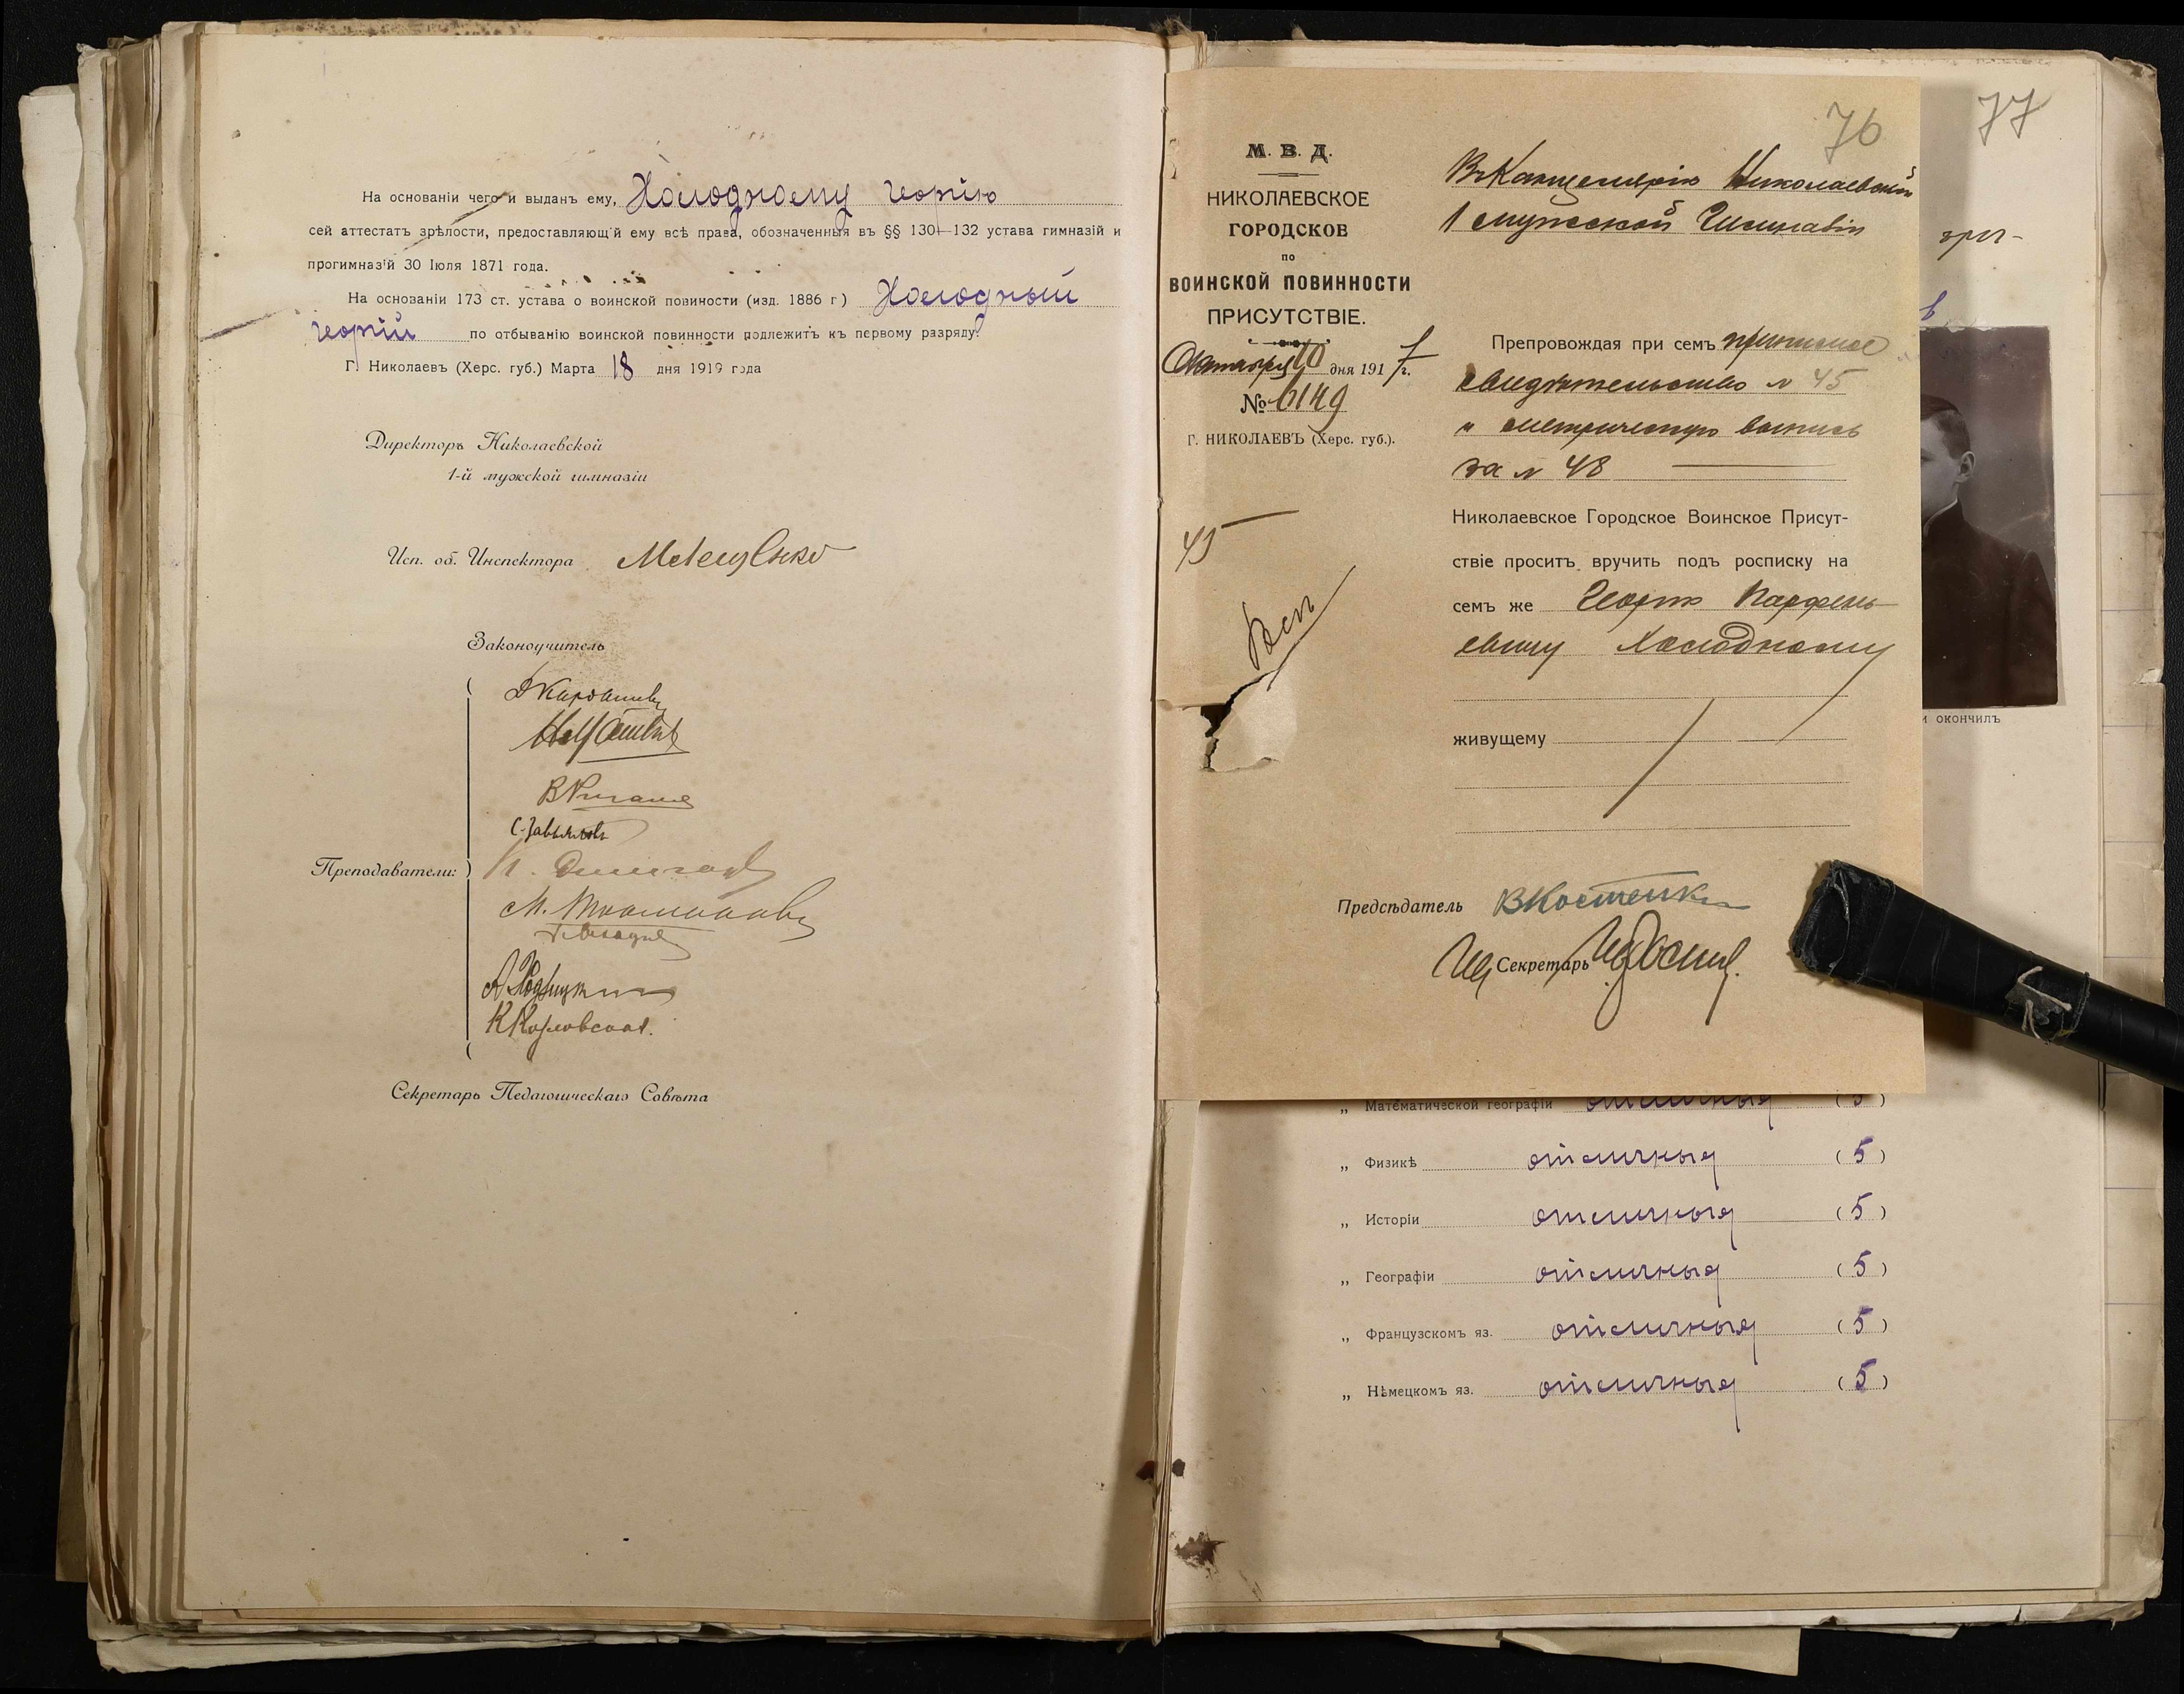 На основаніи чего и выданъ ему, Холодному Георгію
сей аттестатъ зрѣлости, предоставляющій ему всѣ права, обозначенныя въ §§ 130—132 устава гимназій и
прогимназій 30 Іюля 1871 года.
На основаніи 173 ст. устава о воинской повиности (изд. 1886 г) Холодный
Георгій по отбыванію воинской повинности подлежитъ къ первому разряду.
Г. Николаевъ (Херс. губ.) Марта 18 дня 1919 года
Директоръ Николаевской
1-й мужской гимназіи
Исп. об. Инспектора
Законоучитель
С. Завьяловъ
Преподаватели:
К Козловская.
Секретарь Педагогическаго Совѣта
76
М. В. Д.
НИКОЛАЕВСКОЕ
ГОРОДСКОЕ
по
ВОИНСКОЙ ПОВИННОСТИ
ПРИСУТСТВІЕ.
Октября 10 дня 1917 г.
№ 6149
Г. НИКОЛАЕВЪ (Херс. губ.).
45
Въ Канцелярію Николаевской
1 мужской Гимназіи
Препровождая при семъ приписное
свидѣтельство № 45
и метрическую выпись
за № 48
Николаевское Городское Воинское Присут-
ствіе проситъ вручить подъ росписку на
семъ же Георгію Парфень-
евичу Холодному
живущему
Предсѣдатель ВКостенко
Секретарь
77
зрѣ-
и окончилъ
„ Математической географіи отличныя (5)
„ Физикѣ отличныя (5)
„ Исторіи отличныя (5)
„ Географіи отличныя (5)
„ Французскомъ яз. отличныя (5)
„ Нѣмецкомъ яз. отличныя (5)